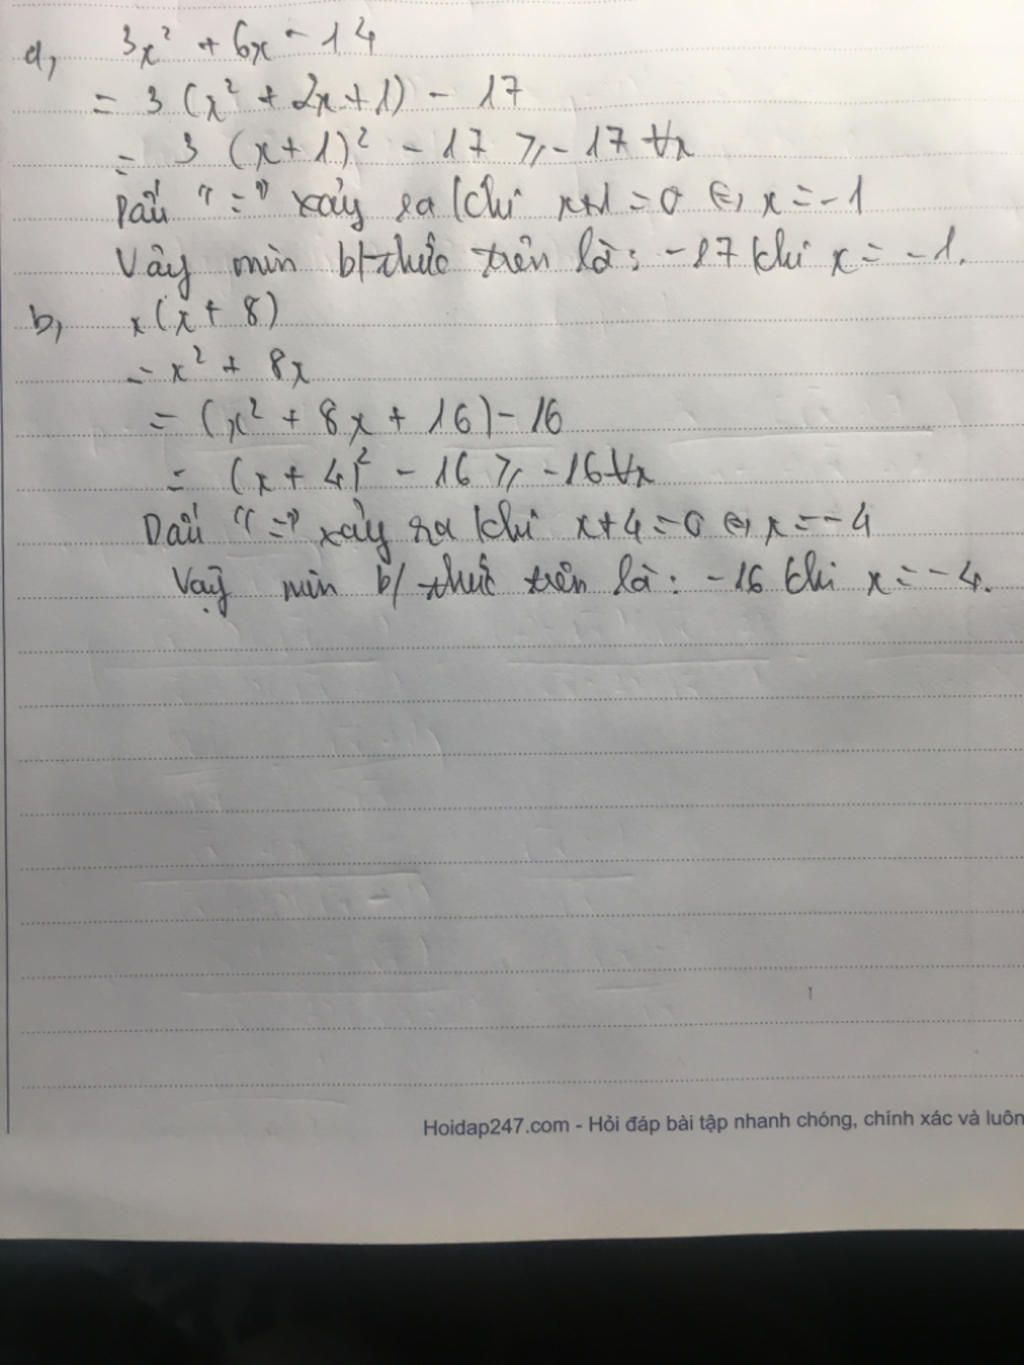 a, 3x² + 6x - 14
= 3 (x² + 2x + 1) - 17
= 3 (x + 1)² - 17 ⩾ - 17 ∀x
Dấu "=" xảy ra khi x+1 = 0 ⇔ x = -1
Vậy min b/thức trên là: -17 khi x = -1.
b, x(x + 8)
= x² + 8x
= (x² + 8x + 16) - 16
= (x + 4)² - 16 ⩾ -16 ∀x
Dấu "=" xảy ra khi x+4 = 0 ⇔ x = -4
Vậy min b/thức trên là: -16 khi x = -4.
Hoidap247.com - Hỏi đáp bài tập nhanh chóng, chính xác và luôn